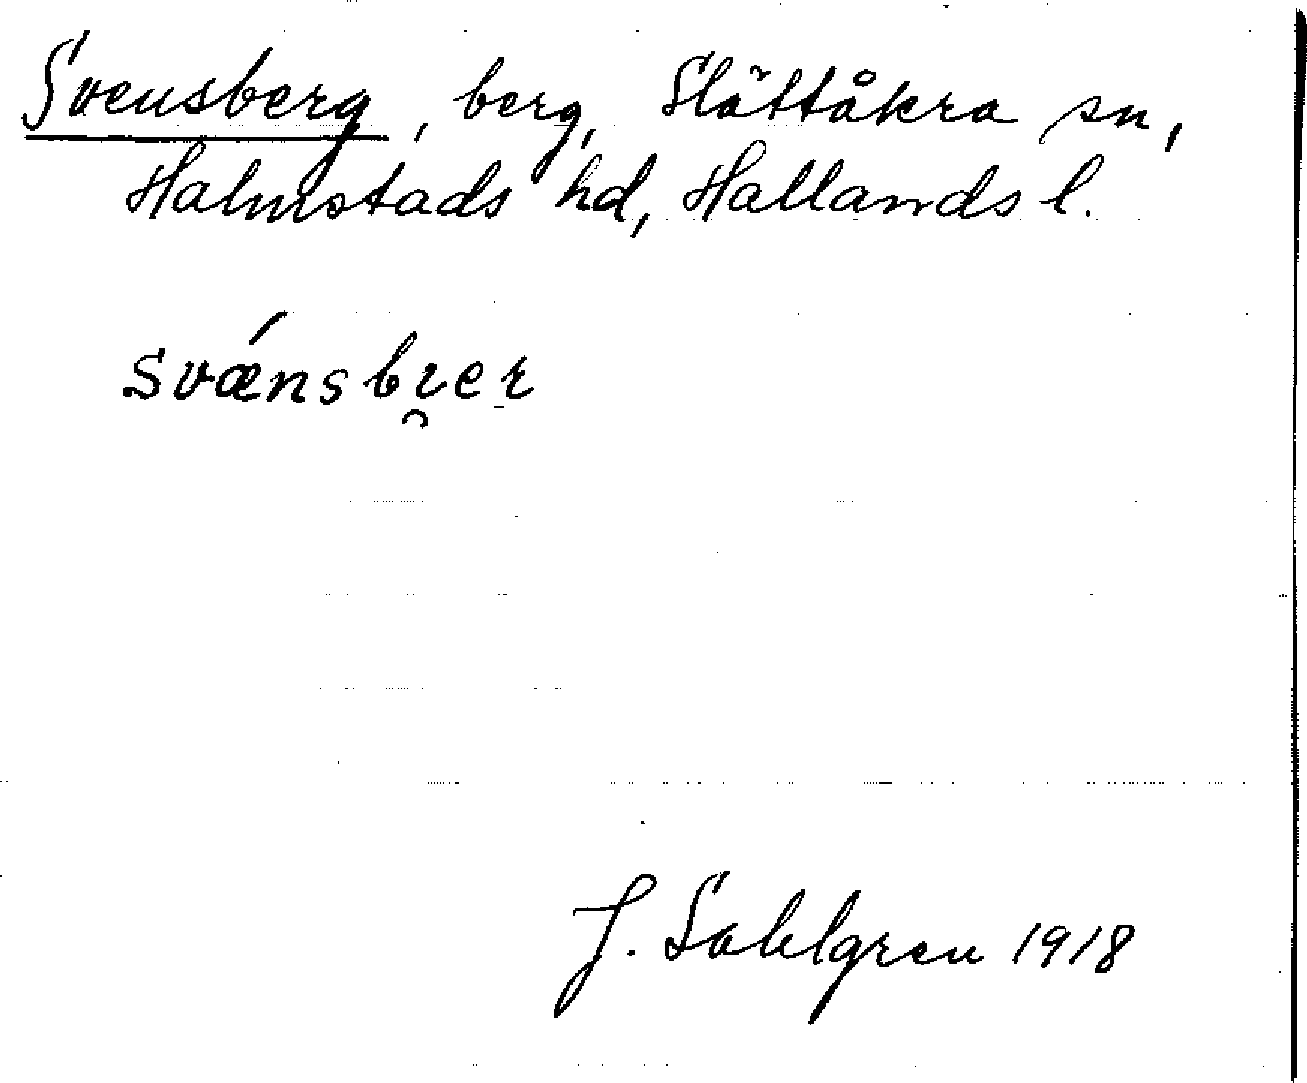 Svensberg, berg, Slättåkra sn,
Halmstads hd, Hallands l.
svǽnsbɿ̯er
J. Sahlgren 1918